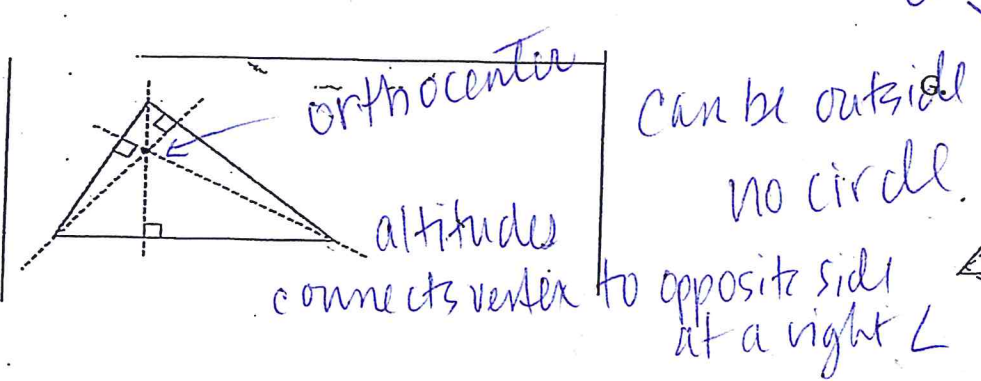 orthocenter
can be outside
no circle.
altitudes
connects vertex to opposite side
at a right ∠